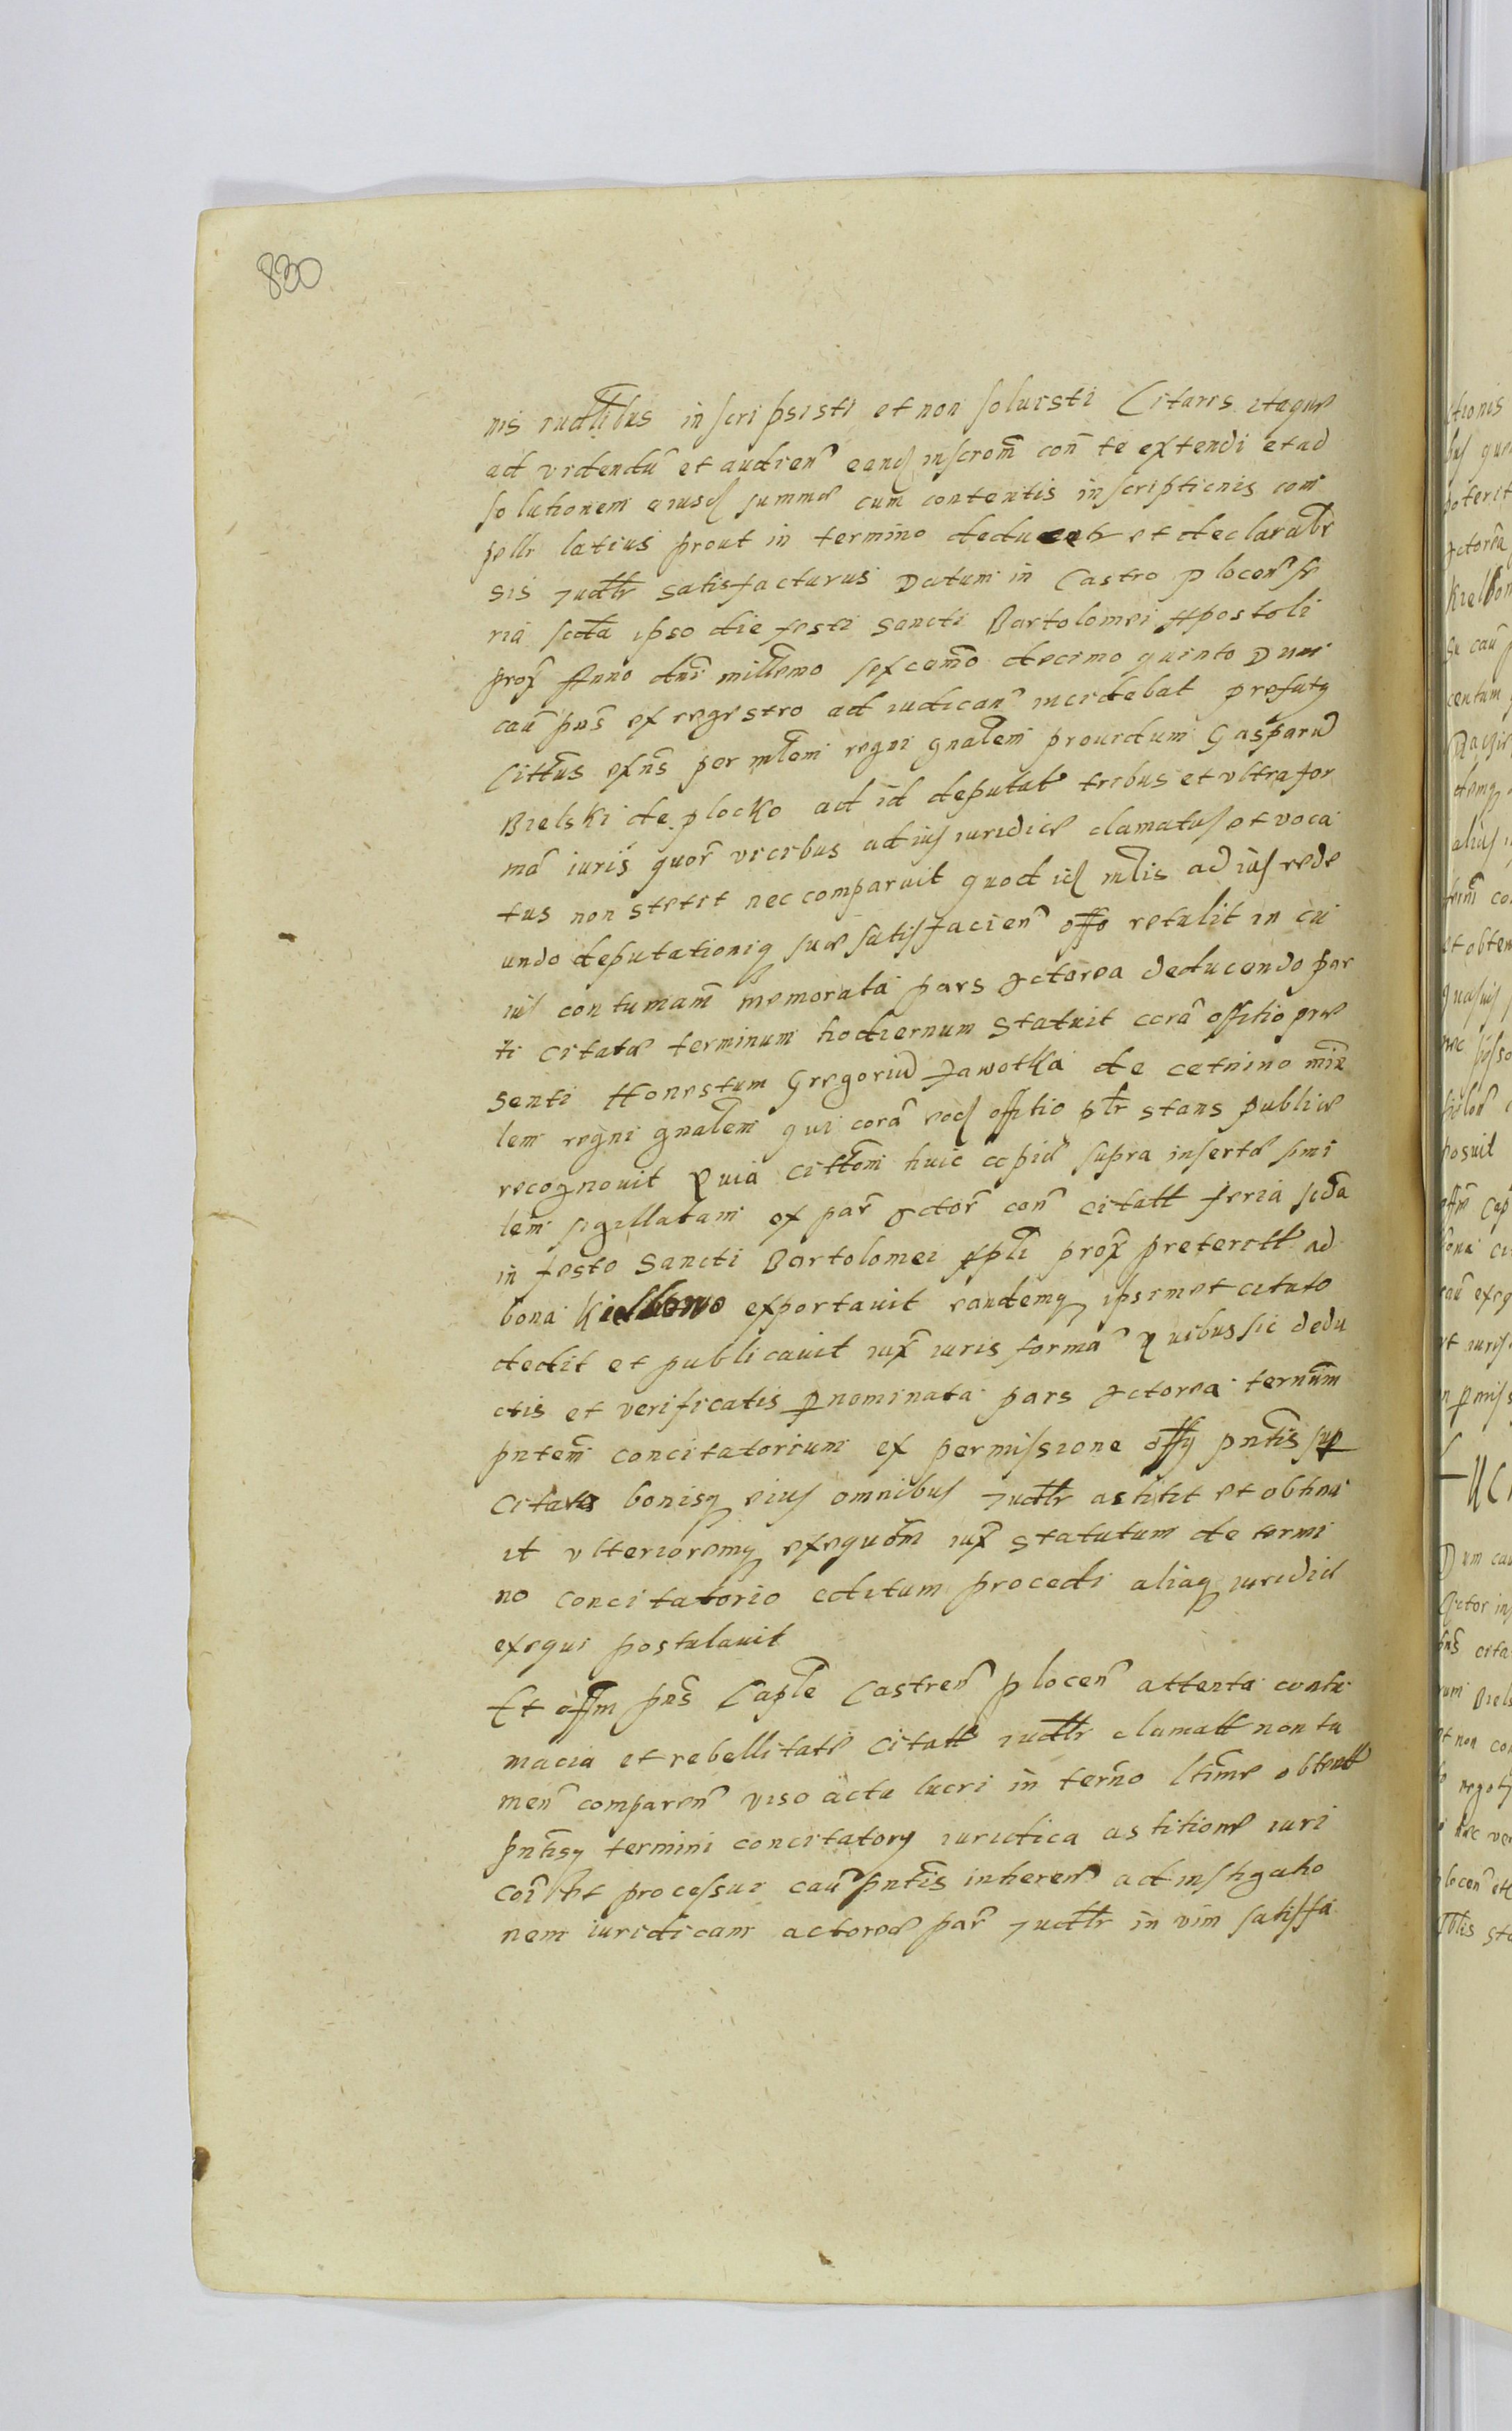 830
nis iudlibus inscripsisti et non soluisti Citaris itaque
ad videndū et audien eand inscrom con te extendi et ad
solutionem eiusd summæ cum contentis inscriptionis com
pelli latius prout in termino deducetr et declarabr
sis iudlr satisfacturus Datum in Castro plocen fe
ria scda ipso die festi Sancti Bartolomei Apostoli
prox Anno dni millemo sexcemo decimo quinto Dum
cau pns ex regestro ad iudican incidebat prefatq
Cittus exns per mlem regni gnalem prouidum Gasparū
Bielski de plocko ad id deputat tribus et vltra for
mā iuris quor vicibus ad ius iuridice clamatus et voca
tus non stetit nec comparuit quod id mlis ad ius rede
undo deputationiq suæ satisfacien offo retulit in cu
ius contumam memorata pars actorea deducendo par
ti citatæ terminum hodiernum statuit corā offitio præ
senti Honestum Gregoriū Jawotka de cetnino mīe
lem regni gnalem qui corā eod offitio plr stans publice
recognouit Quia cittom huic copiæ supra insertæ simi
lem sigillatam ex par actor con citatt feria scda
in festo Sancti Bartolomei Apli prox preteritt ad
bona Kielbowo exportauit eandemq ipsemet citato
dedit et publicauit iux iuris formā Quibus sic dedu
ctis et verificatis pnominata pars actorea ternum
pntem concitatorium ex permissione offy pntis sup
citato bonisq eius omnibus iudlr astitit et obtinu
it vlterioremq exequom iux statutum de termi
no concitatorio editum procedi aliaq iuridice
exequi postulauit
Et offm pns Caple Castren plocen attenta contu
macia et rebellitate citatt iudlr clamatt non ta
men comparen viso actu lucri in terno ltime obtentt
pntisq termini concitatory iuridica astitione iuri
coi et processui cau pntis inheren ad instigatio
nem iuridicam actoreæ par iudlr in vim satisfa